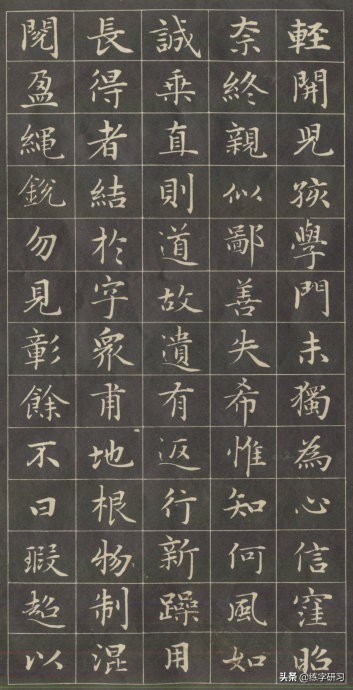 輕開兒孩學門未獨為心信窪昭
奈終親似鄙善失希惟知何風如
誠乘直則道故遺有返行新躁用
長得者結於字眾甫地根物制混
閱盈繩銳勿見彰餘不曰瑕超以
头条 @练字研习